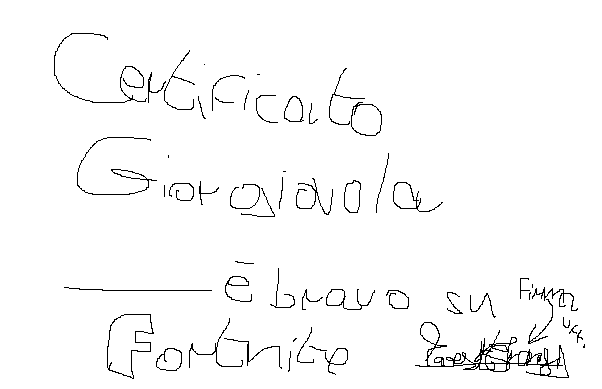 Certificato
Giorgiovola
_______ è bravo su
Fortnite
Firma
Uff.